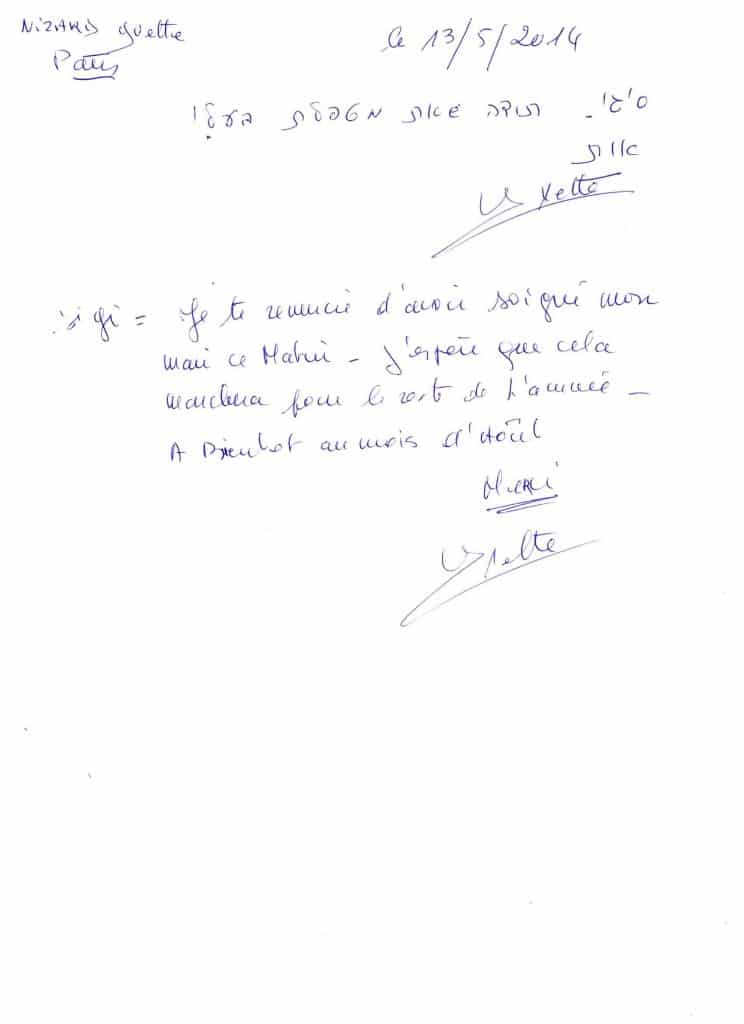 NIZARD Yvette
le 13/5/2014
Paris
סיגי - תודה שאת מטפלת בעלי
אוות
Yvette
Sigi = Je te remercie d'avoir soigné mon
mari ce Matin - J'espère que cela
marchera pour le reste de l'année -
A Bientot au mois d'Août
Merci
Yvette